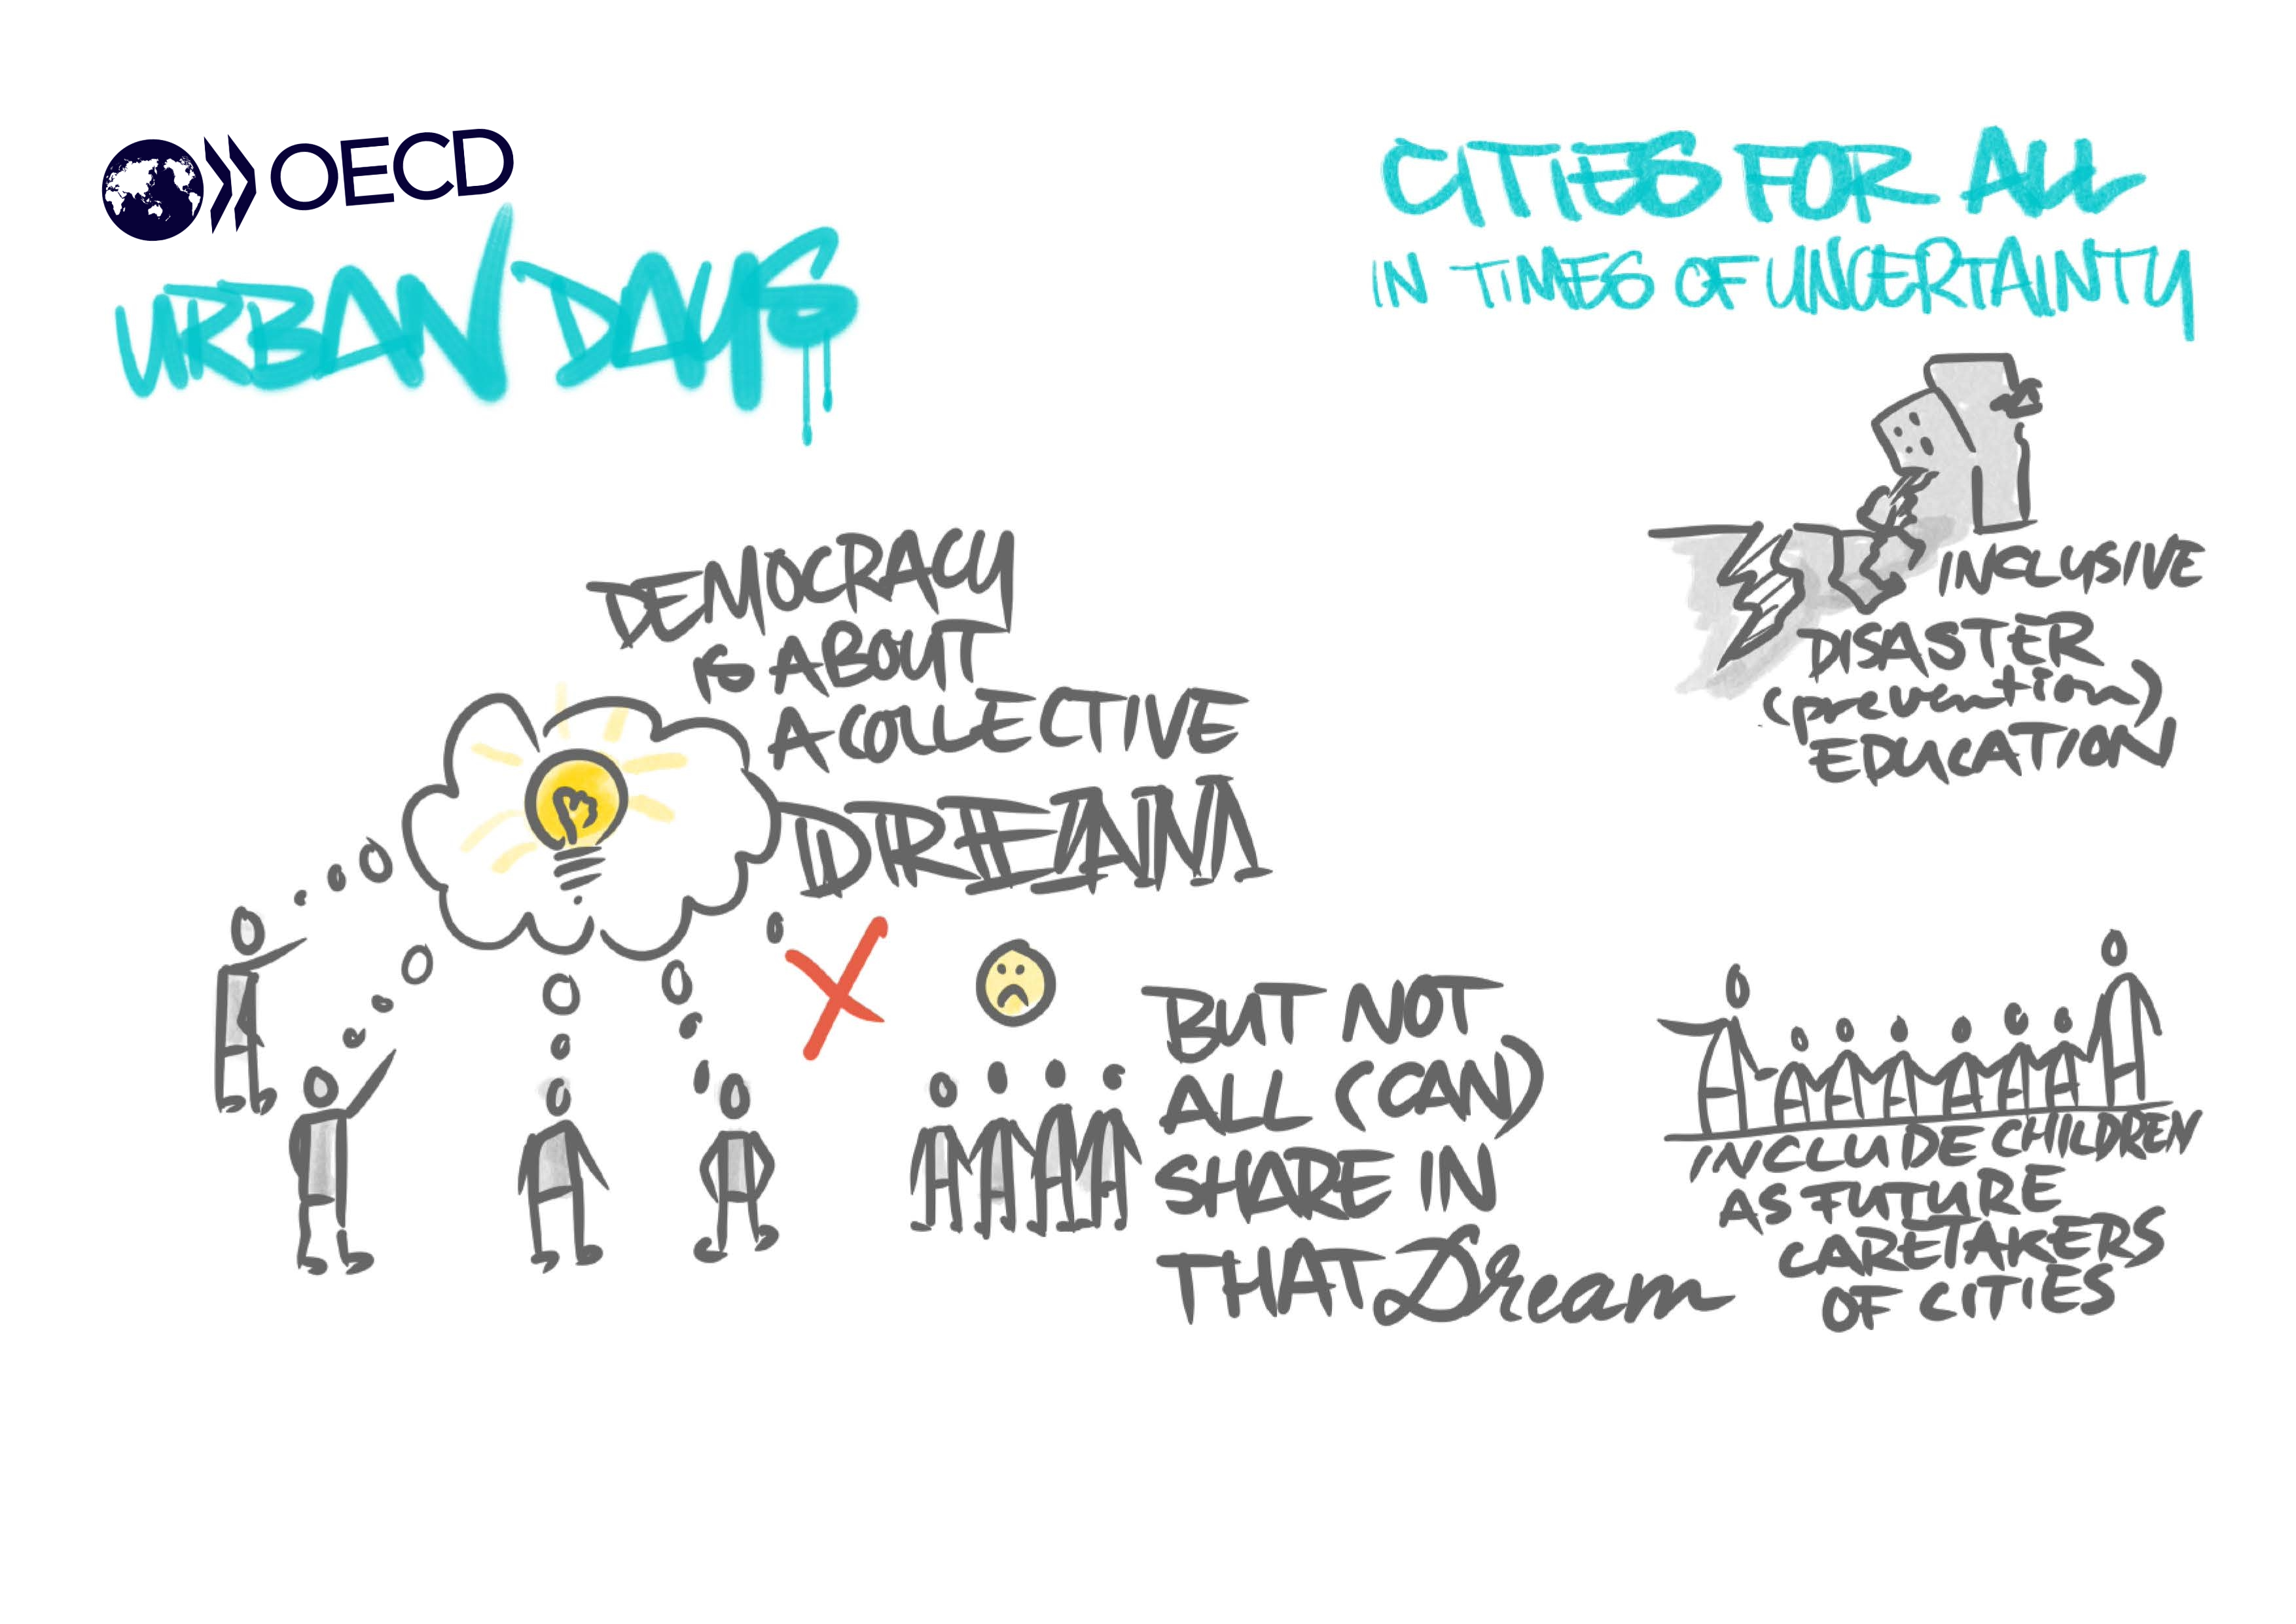 OECD
URBAN DAYS
CITIES FOR ALL
IN TIMES OF UNCERTAINTY
DEMOCRACY
IS ABOUT
A COLLECTIVE
DREAM
BUT NOT
ALL (CAN)
SHARE IN
THAT Dream
INCLUSIVE
DISASTER
(prevention)
EDUCATION
INCLUDE CHILDREN
AS FUTURE
CARETAKERS
OF CITIES